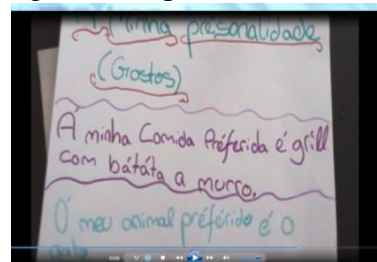 Minha presonalidade
(Gostos)
A minha Comida Préferida é grill
com bátáta a murro.
O meu animal préférido é o
gato